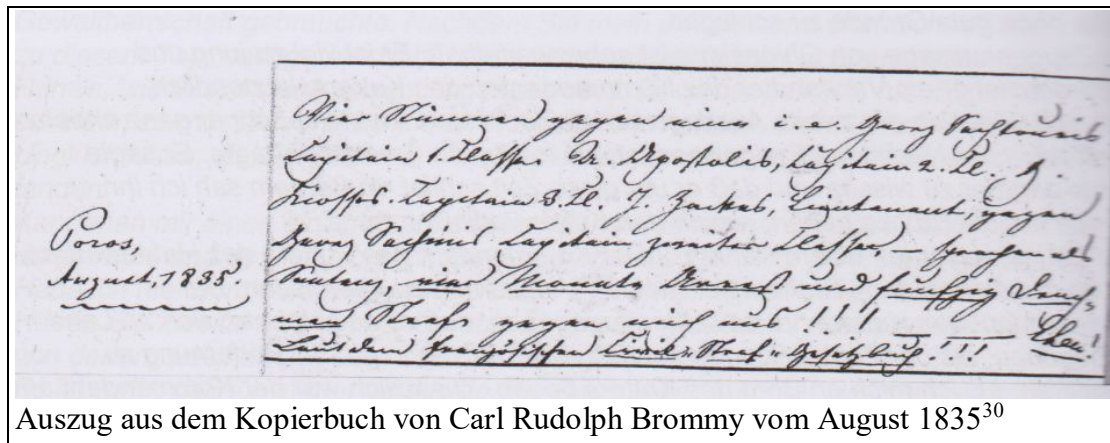 Vier Stimmen gegen eine. Georg Sachtouris
Capitain 1. Classe. A. Apostolis, Capitain 2. Cl. G.
Kiosses. Capitain 3. Cl. J. Zackas, Lieutenant; gegen
Georg Sachinis Capitain zweiter Classe, sprechen als
Sentenz, vier Monate Arrest und funfzig Drach-
men Strafe gegen mich aus!!!
Aus dem französischen Civil-Straf-Gesetzbuch!!!
Poros,
August, 1835
Auszug aus dem Kopierbuch von Carl Rudolph Brommy vom August 1835³⁰